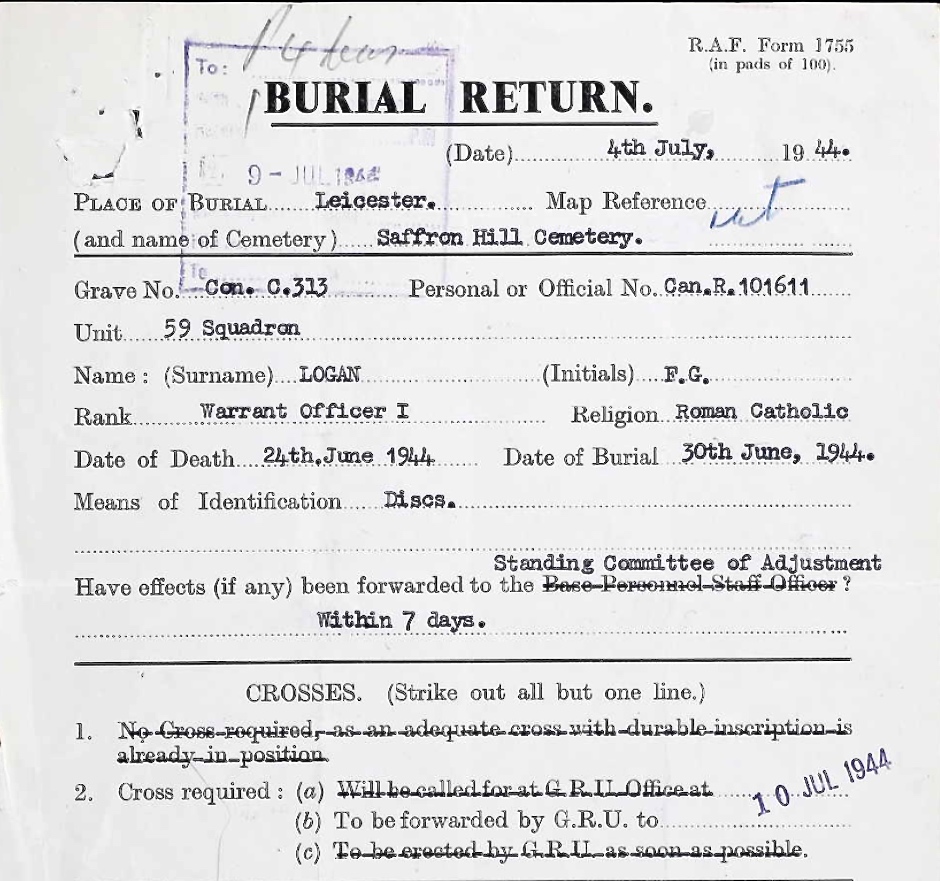 R.A.F. Form 1755
(in pads of 100).
To:
BURIAL RETURN.
(Date) 4th July, 19 44.
9 - JUL 1944
PLACE OF BURIAL Leicester. Map Reference
(and name of Cemetery) Saffron Hill Cemetery.
To
Grave No. Con. C.313 Personal or Official No. Can.R.101611
Unit 59 Squadron
Name : (Surname) LOGAN (Initials) F.G.
Rank Warrant Officer I Religion Roman Catholic
Date of Death 24th.June 1944 Date of Burial 30th June, 1944.
Means of Identification Discs.
Standing Committee of Adjustment
Have effects (if any) been forwarded to the Base Personnel Staff Officer ?
Within 7 days.
CROSSES. (Strike out all but one line.)
1. No Cross required, as an adequate cross with durable inscription is
already in position.
2. Cross required : (a) Will be called for at G.R.U. Office at
10 JUL 1944
(b) To be forwarded by G.R.U. to
(c) To be erected by G.R.U. as soon as possible.